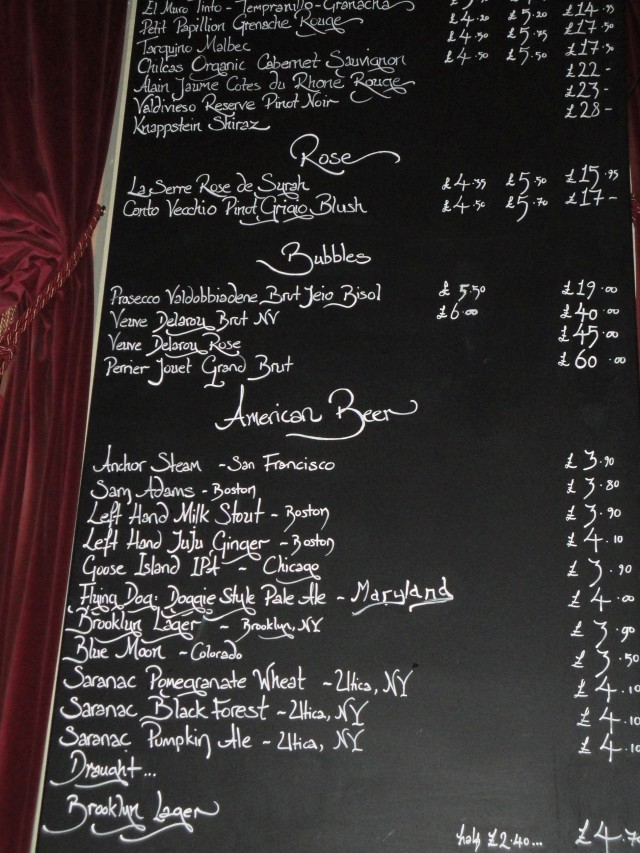 El Muro Tinto - Tempranillo-Granacha
Petit Papillion Grenache Rouge £4.20 £5.20 £14.95
Tarquino Malbec £4.50 £5.75 £17.50
Chilcas Organic Cabernet Sauvignon £4.50 £5.50 £17.50
Alain Jaume Cotes du Rhone Rouge £22-
Valdivieso Reserve Pinot Noir £23-
Knappstein Shiraz £28-
Rose
La Serre Rose de Syrah £4.35 £5.50 £15.95
Conto Vecchio Pinot Grigio Blush £4.50 £5.70 £17-
Bubbles
Prosecco Valdobbiadene Brut Jeio Bisol £5.50 £19.00
Veuve Delaroy Brut NV £6.00 £40.00
Veuve Delaroy Rose £45.00
Perrier Jouet Grand Brut £60.00
American Beer
Anchor Steam - San Francisco £3.90
Sam Adams - Boston £3.80
Left Hand Milk Stout - Boston £3.90
Left Hand JuJu Ginger - Boston £4.10
Goose Island IPA - Chicago £3.90
Flying Dog: Doggie Style Pale Ale - Maryland £4.00
Brooklyn Lager - Brooklyn, NY £3.90
Blue Moon - Colorado £3.50
Saranac Pomegranate Wheat - Utica, NY £4.10
Saranac Black Forest - Utica, NY £4.10
Saranac Pumpkin Ale - Utica, NY £4.10
Draught...
Brooklyn Lager half £2.40... £4.70